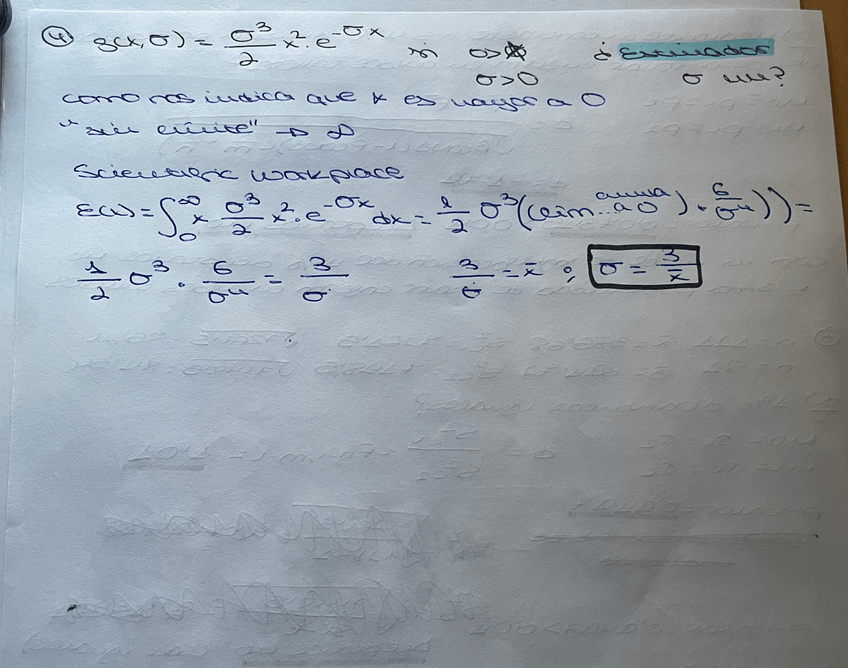 ④ g(x,σ) = σ³/2 x²·e^-σx si 0>x ¿Estimador
σ>0 σ mm?
como nos indica que x es mayor a 0
"sin límite" → ∞
Scientific workplace
E(x) = ∫₀^∞ x σ³/2 x²·e^-σx dx = 1/2 σ³((lim... a 0) + 6/σ⁴)) =
1/2 σ³ · 6/σ⁴ = 3/σ 3/σ = x̄ ; σ = 3/x̄